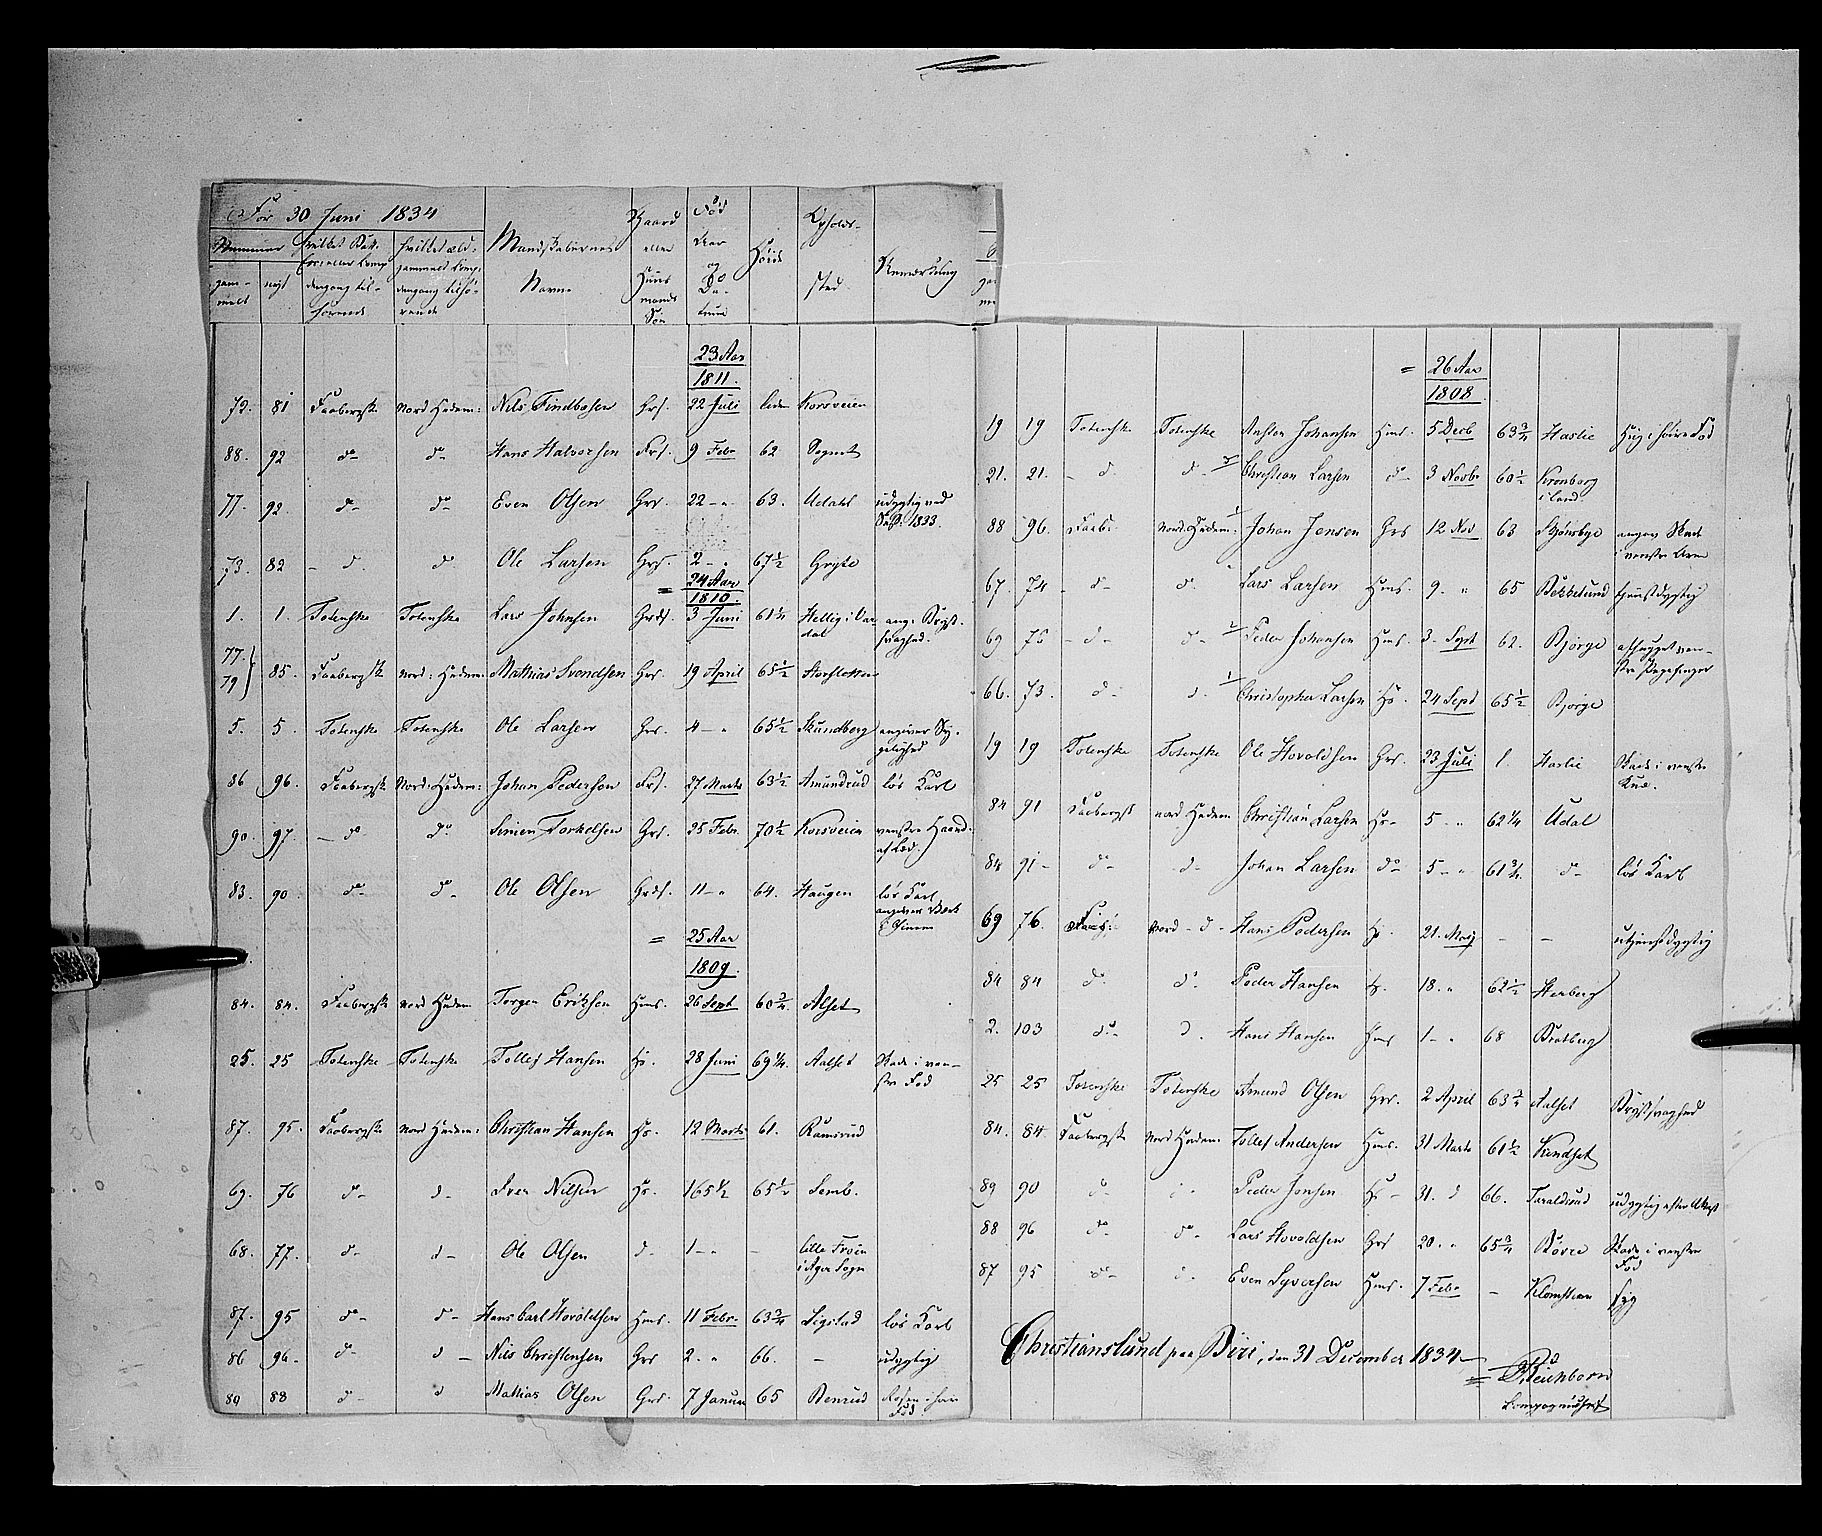 For 30 Juni 1834
Nummer
gammelt
nyt
Mandskabernes Navne
Gaard eller Huusmands Søn
Fød Aar og Datum
Høide
Opholds-sted
Anmærkning
23 Aar
1811.
72. 81 Faabergske Nord Hedem: Nils Findbosen Grs. 22 Juli liden Korsveien
88. 92 do do Hans Halvorsen 9 Febr 62 Sogned
77. 92 do do Even Olsen Grs. 22 - " 63. Udahl udygtig ved Sess: 1833.
73. 82 - do do Ole Larsen Grs. 2 - " 67½ Gryte
= 24 Aar
1810.
1. 1. Totenske Totenske Lars Johnsen 3 Juni 61¼ Hellig i Vardal ang: Brystsvaghed.
77. 79 } 85. Faabergsk Nord: Hedem: Mathias Svendsen Grs. 19 April 65½
5. 5. Totenske Totenske Ole Larsen Grs. 4 - " 65½ Skundberg angiver Sygelighed
86 96. Faabergsk Nord: Hedem: Johan Pedersen 27 Marts 63½ Amundrud løs Karl
90. 97. - do do Simen Torkelsen Grs. 25 Febr. 70½ Korsveien venstre Haand af Led.
83. 90. do do Ole Olsen 11 - " 64. Haugen løs Karl
= 25 Aar
1809.
84. 84. Faabergsk Nord Hedem Torger Eriksen Hms. 26 Sept 60¾ Alset
25. 25 Totenske Totenske Tollef Hansen Hs. 28 Juni 69¼. Aalset Skade i venstre Fod
87. 95. Faabergske Nord Hedem: Christian Hansen Hs. 12 Marts 61. Ramsrud
69. 76 do do Iver Nilsen Hs. 65½ Semb.
68. 77. do do Ole Olsen do 1 - " - lille Frøien i Ager Sogn
87. 95 do do Hans Carl Hovoldsen Hms. 11 Febr. 63¾ Sigstad løs Karl
86 96. do do Nils Christensen Grs 2 - " 66. - udygtig
89 88 do do Mathias Olsen Grs. 7 Januar 65 Fod
= 26 Aar
1808.
19 19 Totenske Totenske Anston Johansen Hms. 5 Decb 63¾ Haslie Hug i høire Fod
21. 21. - do do Christian Larsen do 3 Novbr 60½ Kronborg i land
88 96. Faab: Nord: Hedem: Johan Jensen Grs 12 Nov 63 Skjønsbye angiv Skade i venstre Arm
67. 74 - do do Lars Larsen Hms. 9 " 65 Bekkelund tjenstdygtig
69 75 - do do Peder Johansen Hms. 3 - Sept 62. Bjørge afhugget venstre Pegefinger
66. 73. do do Christopher Larsen Hs. 24 Sept 65½ Bjørge
19 19 Totenske Totenske Ole Hovoldsen Grs. 23 Juli 1. Haslie Skade i venstre Knæ.
84 91 Faabergsk Nord Hedem Christian Larsen Hs - 5 - " 62¼ Udal
84 91 - do do Johan Larsen do 5 - " 61¾ do løs Karl
69 76. Nord - do Hans Pedersen Hs. 21. Maj - - utjenstdygtig
84 84 do do Peder Hansen Hs. 18. " 62½ Herberg
2. 103 do do Hans Hansen Hms 1 - " 68 Bratberg
25 25 Totenske Totenske Amund Olsen Grs. 2 April 63¾ Aalset Brystsvaghed
84. 84 Faabergsk Nord Hedem: Tollef Andersen Hms. 31 Marts 61½ Kindset
89 90 do Peder Jonsen Hs - 31. do 66. Taraldsrud udygtig efter Attest
88 96 do do Lars Hovoldsen Grs 20. " 65¾ Bøvre Skade i venstre Fod
87 95 do do Even Syversen Hms. 7 Febr - Klomstien syg
Christianslund paa Biri, den 31 December 1834